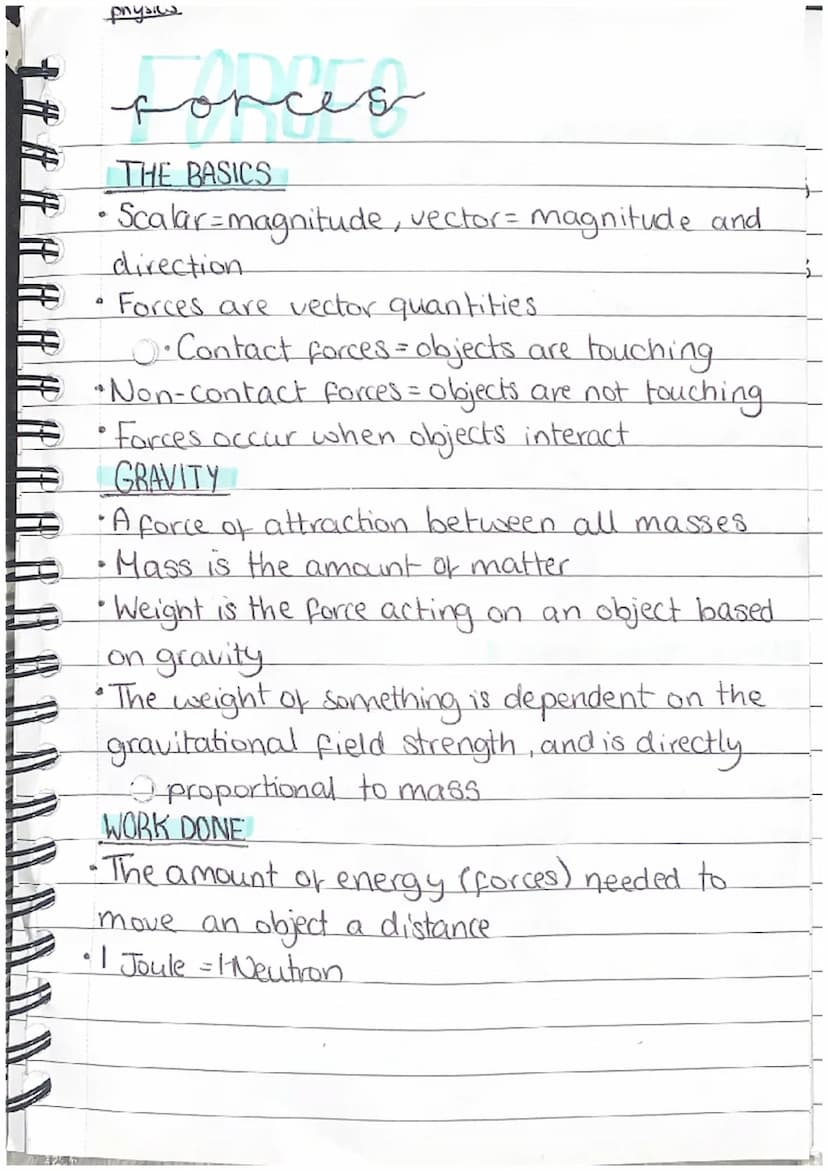 physics
FORCES
forces
THE BASICS
• Scalar=magnitude, vector= magnitude and
direction
• Forces are vector quantities
• Contact forces = objects are touching
• Non-contact forces = objects are not touching
• Forces occur when objects interact
GRAVITY
• A force of attraction between all masses
• Mass is the amount of matter
• Weight is the force acting on an object based
on gravity
• The weight of something is dependent on the
gravitational field strength, and is directly
proportional to mass
WORK DONE
• The amount of energy (forces) needed to
move an object a distance
• 1 Joule = 1 Neutron